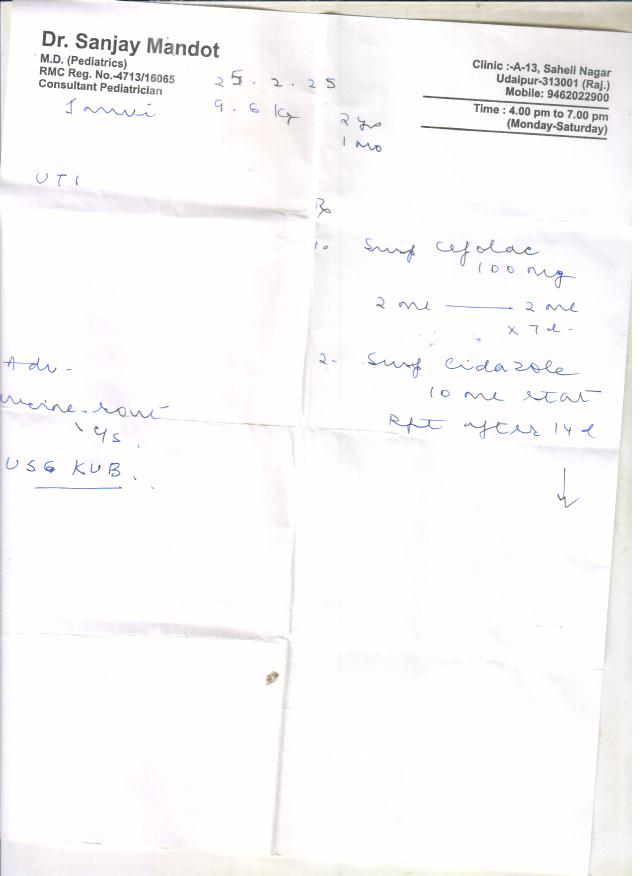 Dr. Sanjay Mandot
M.D. (Pediatrics)
RMC Reg. No.-4713/16065
Consultant Pediatrician
Clinic :-A-13, Saheli Nagar
Udaipur-313001 (Raj.)
Mobile: 9462022900
Time : 4.00 pm to 7.00 pm
(Monday-Saturday)
25.2.25
9.6 Kg
2 yrs
1 mo
UTI
Rx
1. Syrup Cefolac
100 mg
2 ml — 2 ml
x 7 d
2. Syrup Cidazole
10 ml stat
Rpt after 14 d
Adv -
urine - rout
c/s
USG KUB